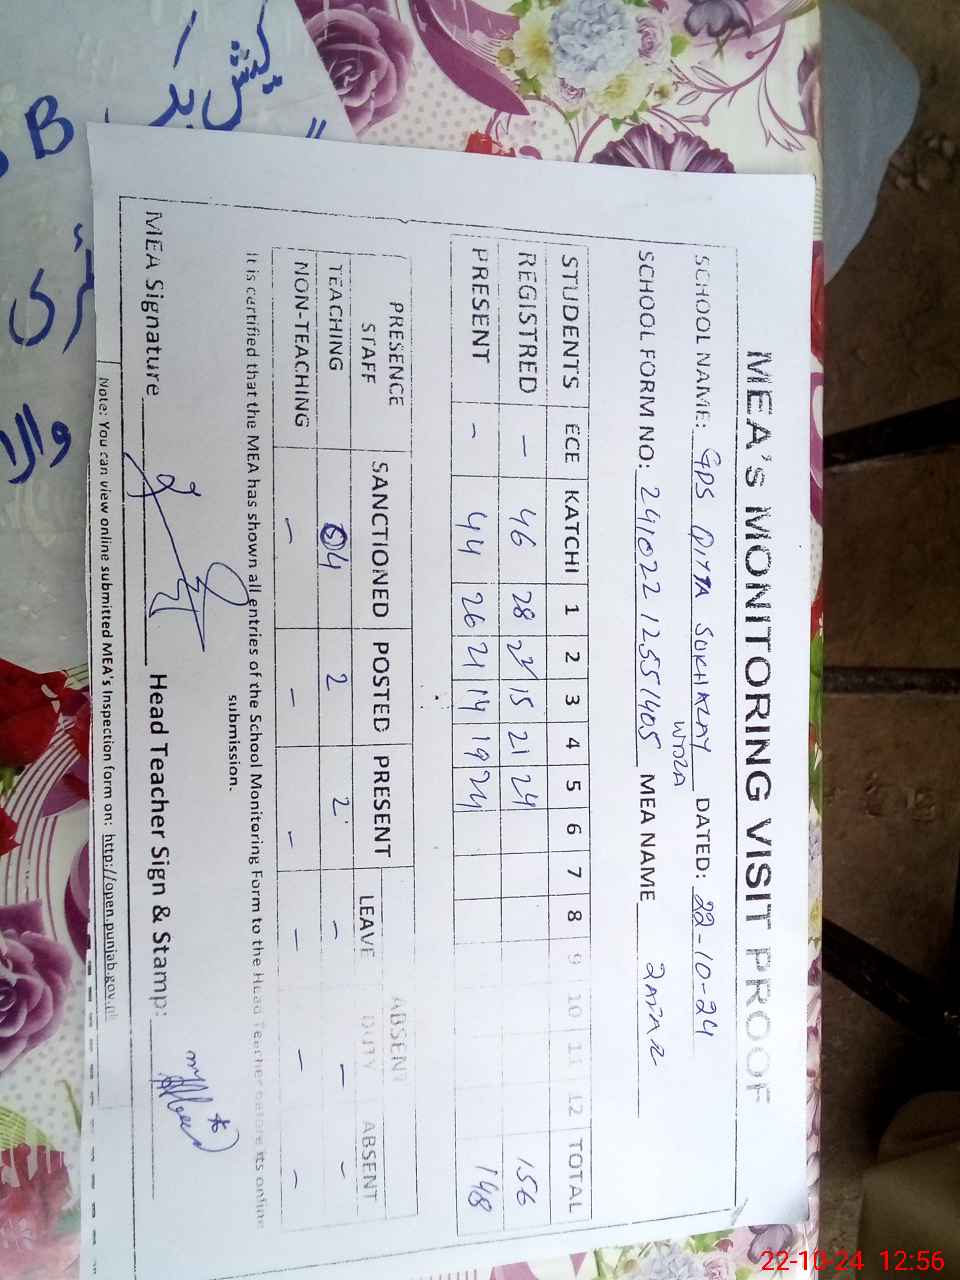 MEA's MONITORING VISIT PROOF
SCHOOL NAME: GPS DITTA SUKHALAY WTDZA DATED: 22-10-24
SCHOOL FORM NO: 24102212551405 MEA NAME ZAFAR
STUDENTS ECE KATCHI 1 2 3 4 5 6 7 8 9 10 11 12 TOTAL
REGISTRED - 46 28 15 21 24 156
PRESENT - 44 26 21 14 19 24 148
PRESENCE STAFF SANCTIONED POSTED PRESENT ABSENT
LEAVE DUTY ABSENT
TEACHING 04 2 2 - - -
NON-TEACHING - - - - - -
It is certified that the MEA has shown all entries of the School Monitoring Form to the Head Teacher before its online
submission.
MEA Signature Head Teacher Sign & Stamp:
Note: You can view online submitted MEA's Inspection form on: http://open.punjab.gov.pk
B
والا
22-10-24 12:56